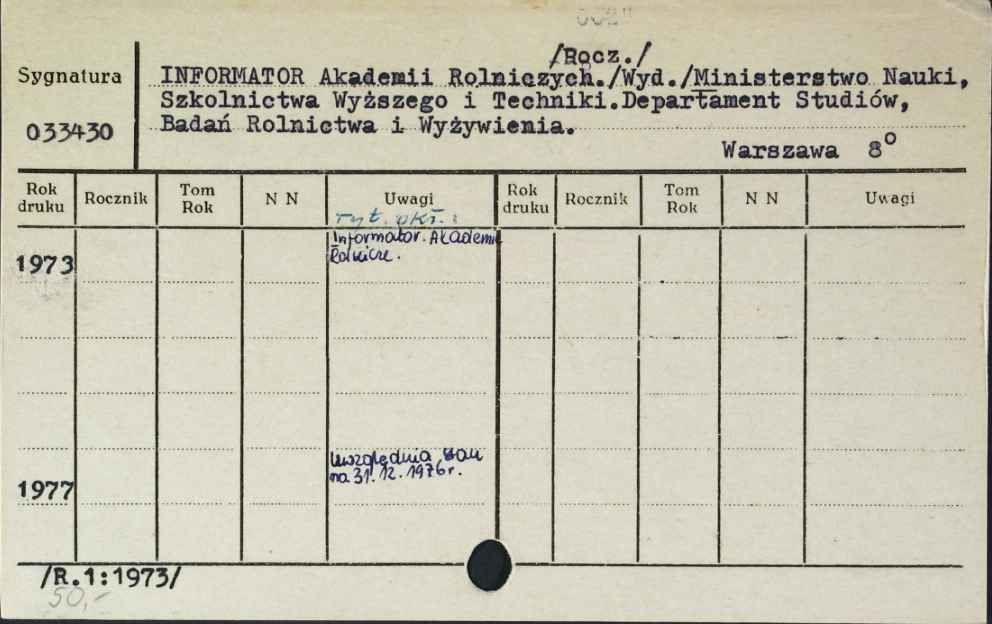 /Rocz./
Sygnatura
INFORMATOR Akademii Rolniczych./Wyd./Ministerstwo Nauki,
Szkolnictwa Wyższego i Techniki.Departament Studiów,
033430
Badań Rolnictwa i Wyżywienia.
Warszawa 8º
Rok druku Rocznik Tom Rok N N Uwagi Rok druku Rocznik Tom Rok N N Uwagi
Tyt. okł.:
Informator. Akademie
1973
Rolnicze.
Uwzględnia stan
na 31.12.1976r.
1977
/R.1:1973/
50,-